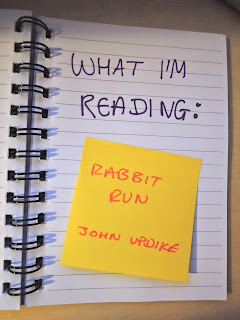 WHAT I'M
READING:
RABBIT
RUN
JOHN UPDIKE